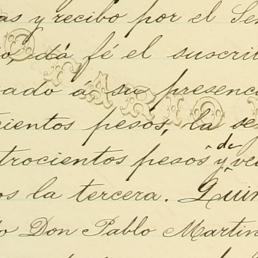 as y recibo por el Se
o dá fé el suscrit
ado á su presenc
cientos pesos, la se
trocientos pesos y de ve
os la tercera. Quin
o Don Pablo Martin